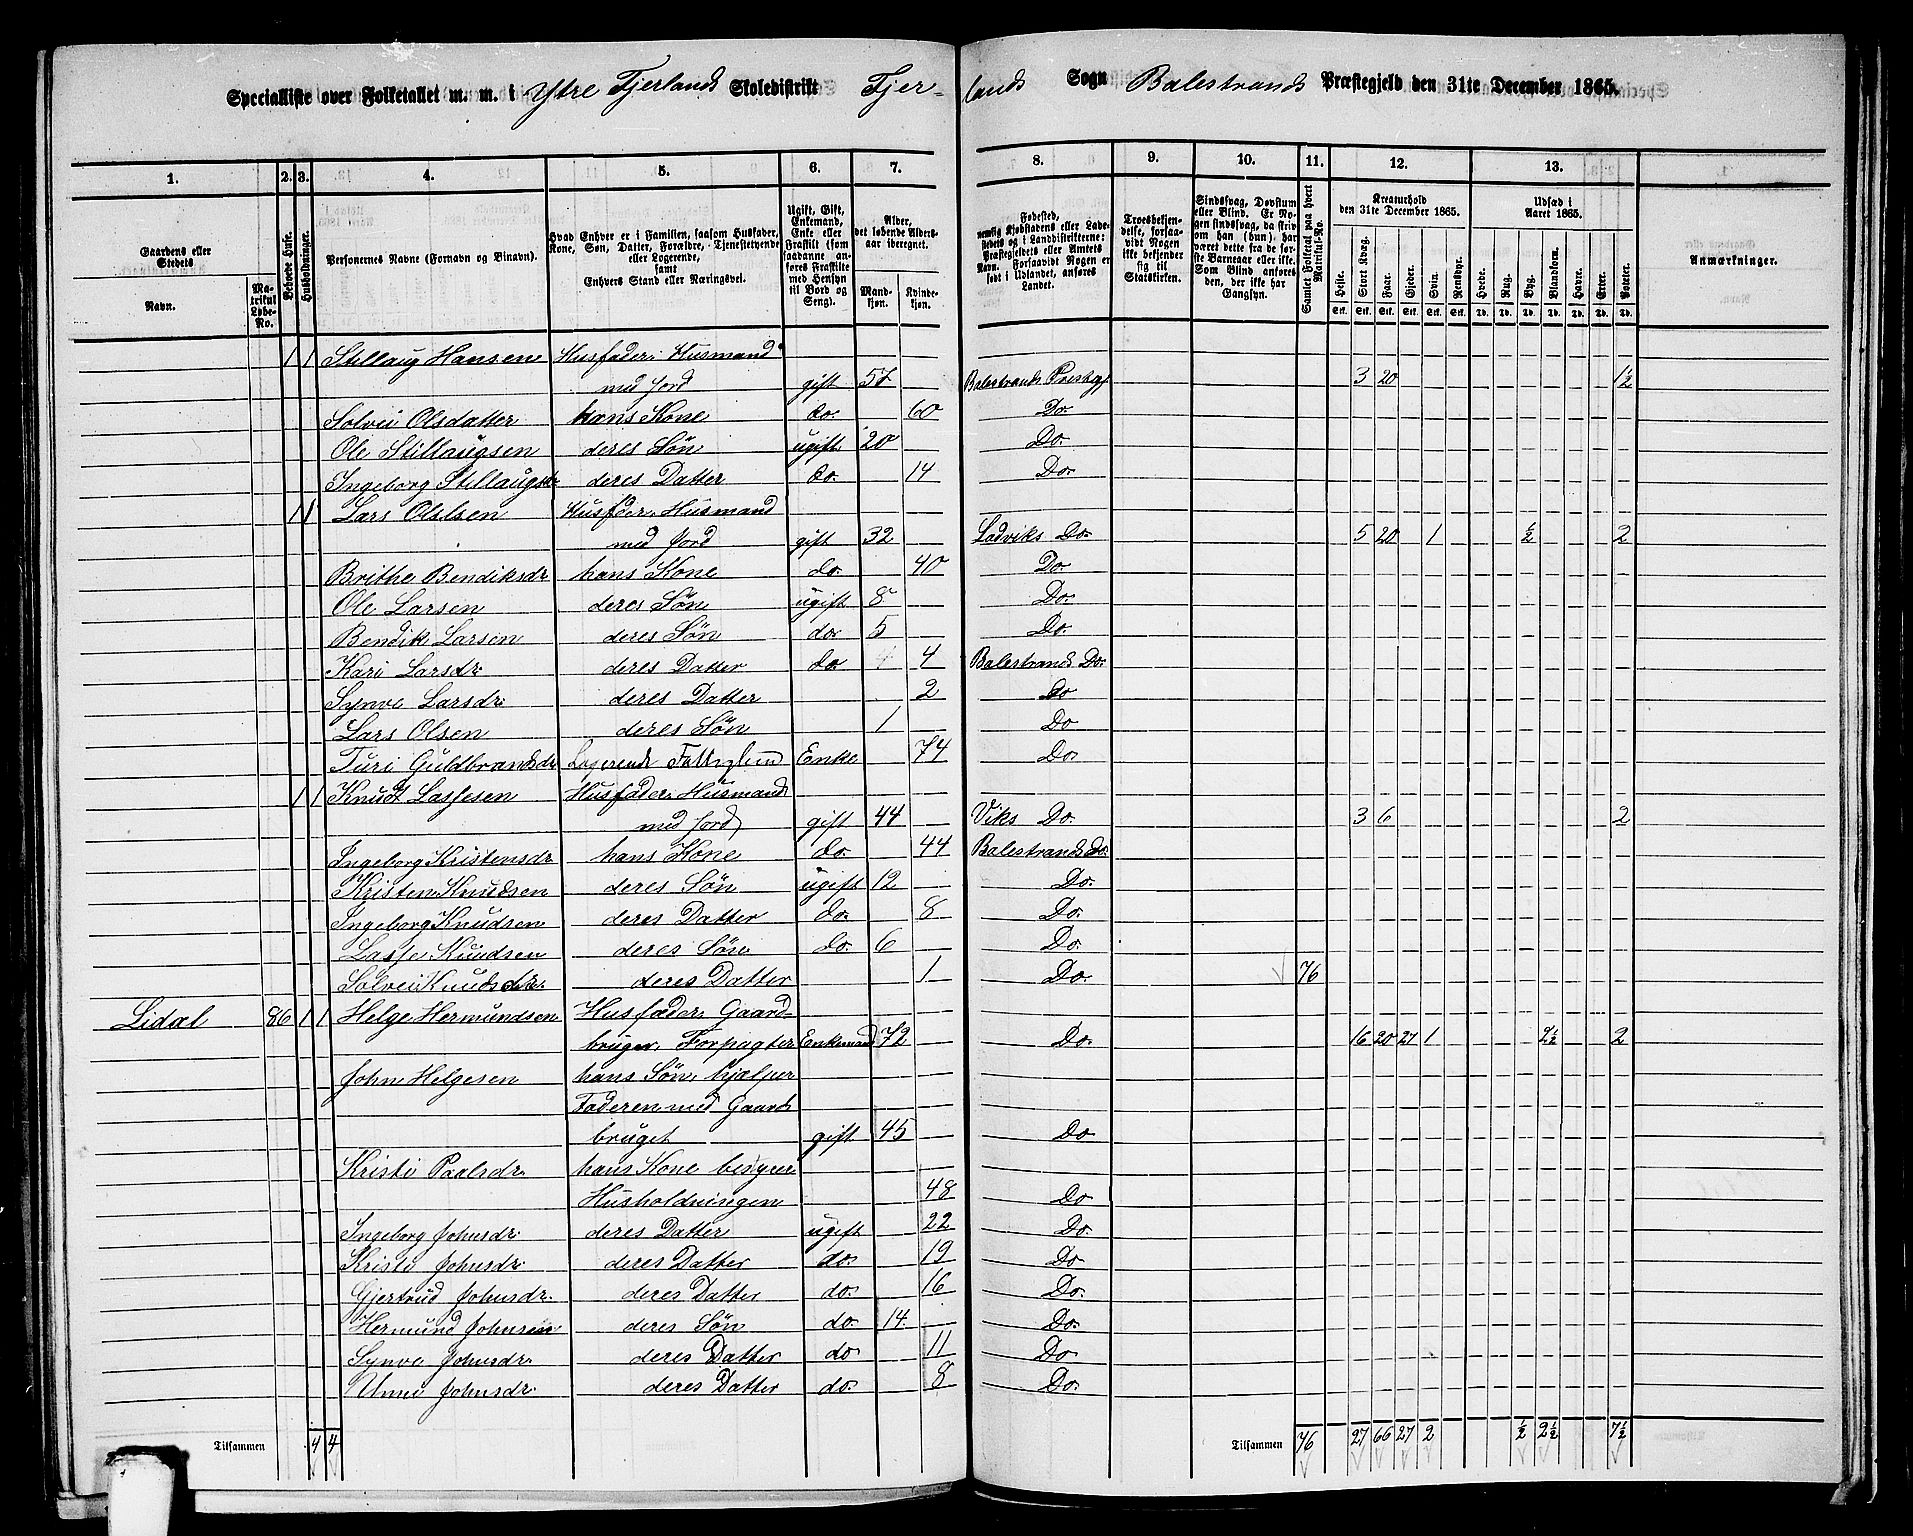 Specialliste over Folketallet m. m. i Ytre Fjerlands Skoledistrikt Fjer- lands Sogn Balestrands Præstegjeld den 31te December 1865.
1. 2. 3. 4. 5. 6. 7. 8. 9. 10. 11. 12. 13. 1.
Gaardens eller Stedets Navn. Matrikul Løbe-No. Beboede Huse. Husholdninger. Personernes Navne (Fornavn og Binavn). Hvad Enhver er i Familien, saasom Husfader, Kone, Søn, Datter, Forældre, Tjenestetyende eller Logerende, samt Enhvers Stand eller Næringsvei. Ugift, Gift, Enkemand, Enke eller Fraskilt (som saadanne anføres Fraskilte med Hensyn til Bord og Seng). Alder, det løbende Aldersaar iberegnet. Mandkjøn. Kvindekjøn. Fødested, nemlig Kjøbstadens eller Ladestedets og i Landdistrikterne: Præstegjeldets eller Amtets Navn. Forsaavidt Nogen er født i Udlandet, anføres Landet. Troesbekjendelse, forsaavidt Nogen ikke bekjender sig til Statskirken. Sindssvag, Døvstum eller Blind. Er Nogen sindssvag, da skrives om han (hun) har været dette fra de første Barneaar eller ikke. Som Blind anføres den, der ikke har Gangsyn. Samlet Folketal paa hvert Matrikul-No. Kreaturhold den 31te December 1865. Heste. Stort Kvæg. Faar. Gjeder. Svin. Rensdyr. Udsæd i Aaret 1865. Hvede. Rug. Byg. Blandkorn. Havre. Erter. Poteter. Anmærkninger.
1 1 Stillaug Hansen Husfader Husmand
med Jord gift 57 Balestrands Prestegj 3 20 1½
Solvei Olsdatter hans Kone do. 60 Do.
Ole Stillaugsen deres Søn ugift 20 Do.
Ingeborg Stillaugdr deres Datter do. 14 Do.
1 1 Lars Olslsen Husfader Husmand
med Jord gift 32 Ladviks Do. 5 20 1 ½ 2
Brithe Bendiksdr hans Kone do. 40 Do
Ole Larsen deres Søn ugift 8 Do.
Bendik Larsen deres Søn do. 5 Do.
Kari Larsdr deres Datter do 4 Balestrands Do.
Synve Larsdr. deres Datter 2 Do
Lars Olsen deres Søn 1 Do
Turi Guldbrandsdr Logerende Fattiglem Enke 74 Do.
1 1 Knud Lassesen Husfader Husmand
med Jord gift 44 Viks Do. 3 6 2
Ingeborg Kristensdr hans Kone do. 44 Balestrands do.
Kristen Knudsen deres Søn ugift 12 Do.
Ingeborg Knudsen deres Datter do. 8 Do.
Lasse Knudsen deres Søn do. 6 Do.
Solvei Knudsdr. deres Datter 1 Do. 76
Lidal 86 1 1 Helge Hermundsen Husfader Gaard-
bruger, Forpagter Enkemand 72 Do. 16 20 27 1 2½ 2
John Helgesen hans Søn, hjælper
Faderen med Gaards
bruget gift 45 Do
Kristi Paalsdr hans Kone bestyrer
Husholdningen 48 Do
Ingeborg Johnsdr. deres Datter ugift 22 Do.
Kristi Johnsdr. deres Datter do. 19 Do.
Gjertrud Johnsdr. deres Datter do. 16 Do.
Hermund Johnsen deres Søn do. 14 Do.
Synve Johnsdr. deres Datter do 11 Do.
Unni Johnsdr. deres Datter do. 8 Do.
Tilsammen 4 4 Tilsammen 76 27 66 27 2 ½ 2½ 7½